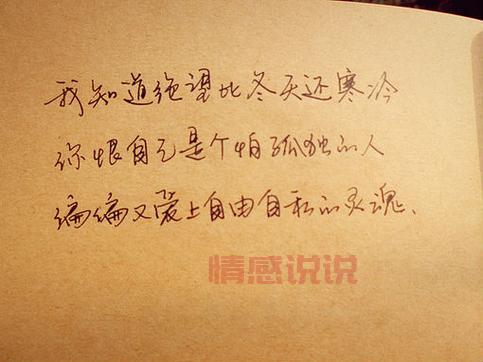 我知道绝望比冬天还寒冷
你恨自己是个怕孤独的人
偏偏又爱上自由自私的灵魂、
情感说说